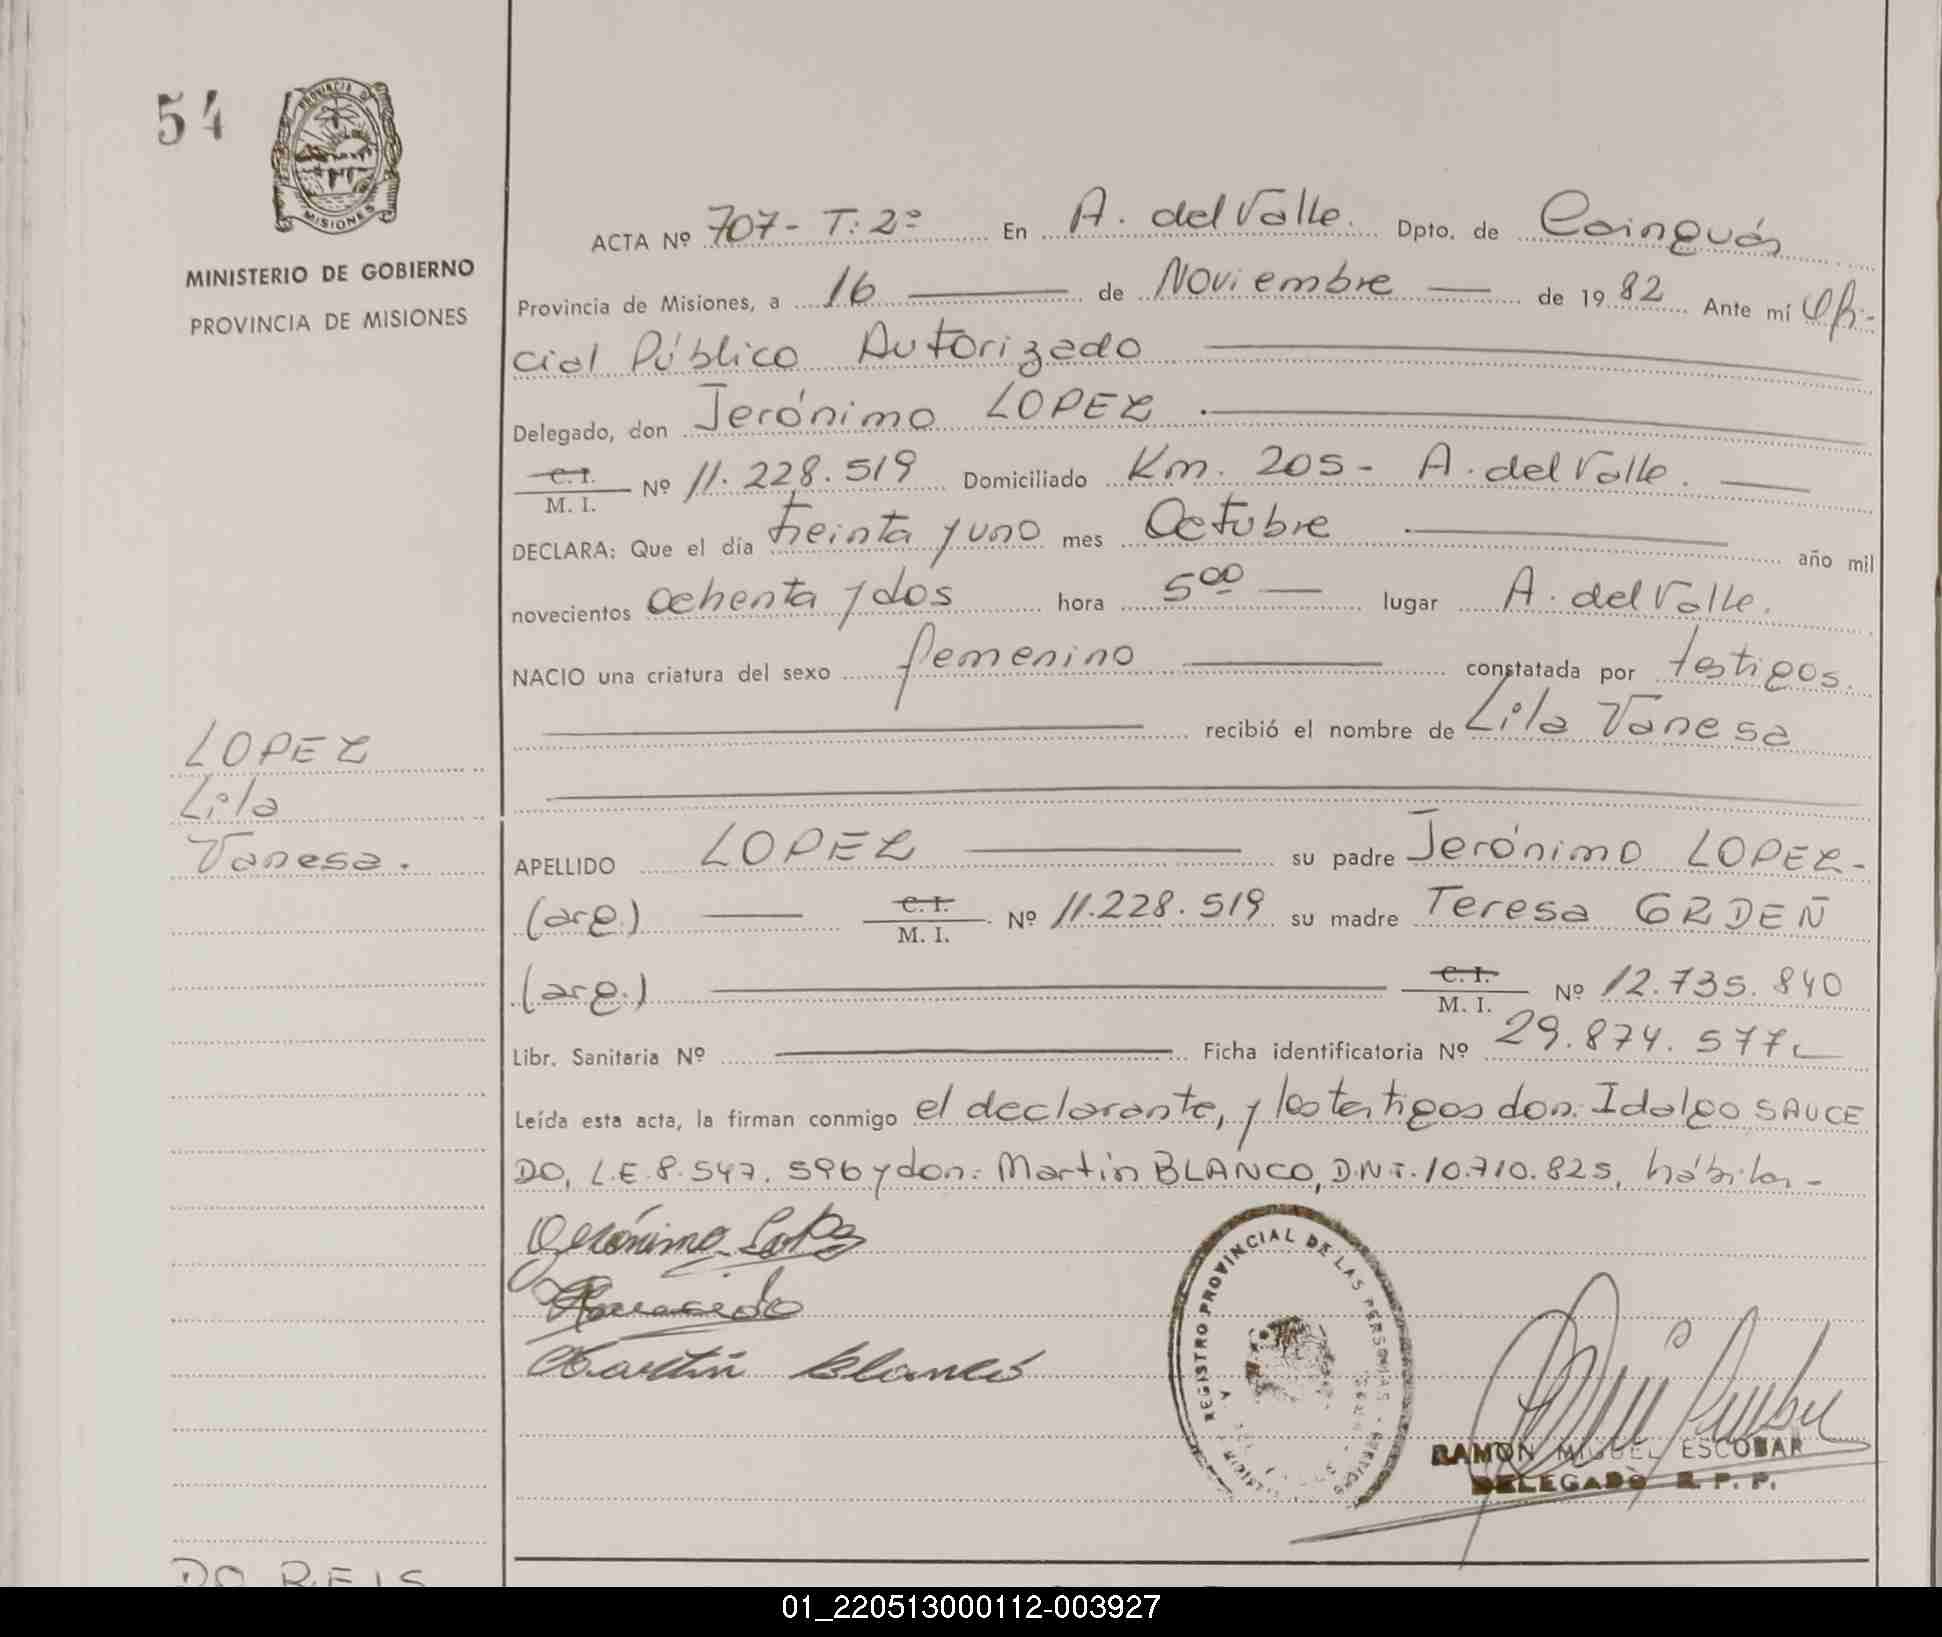 54
PROVINCIA DE
MISIONES
MINISTERIO DE GOBIERNO
PROVINCIA DE MISIONES
ACTA Nº 707- T: 2º En A. del Valle. Dpto. de Cainguás
Provincia de Misiones, a 16 — de Noviembre — de 1982 Ante mí Ofi-
cial Público Autorizado
Delegado, don Jerónimo LOPEZ.
C. I.
M. I. Nº 11.228.519 Domiciliado Km. 205- A. del Valle.
DECLARA: Que el día treinta y uno mes Octubre año mil
novecientos ochenta y dos hora 5⁰⁰ — lugar A. del Valle.
NACIO una criatura del sexo femenino — constatada por testigos.
recibió el nombre de Lila Vanesa
LOPEZ
Lila
Vanesa.
APELLIDO LOPEZ — su padre Jerónimo LOPEZ-
(arg.) — C. I.
M. I. Nº 11.228.519 su madre Teresa GRDEÑ
(arg.) — C. I.
M. I. Nº 12.735.840
Libr. Sanitaria Nº — Ficha identificatoria Nº 29.874.577
Leída esta acta, la firman conmigo el declarante, y los testigos don: Idalgo SAUCE
DO, L.E. 8.547.596 y don: Martín BLANCO, D.N.I. 10.710.825, hábiles-
Jerónimo Lopez
Martín Blanco
REGISTRO PROVINCIAL DE LAS PERSONAS
RAMON MIGUEL ESCOBAR
DELEGADO R. P. P.
DO REIS
01_220513000112-003927